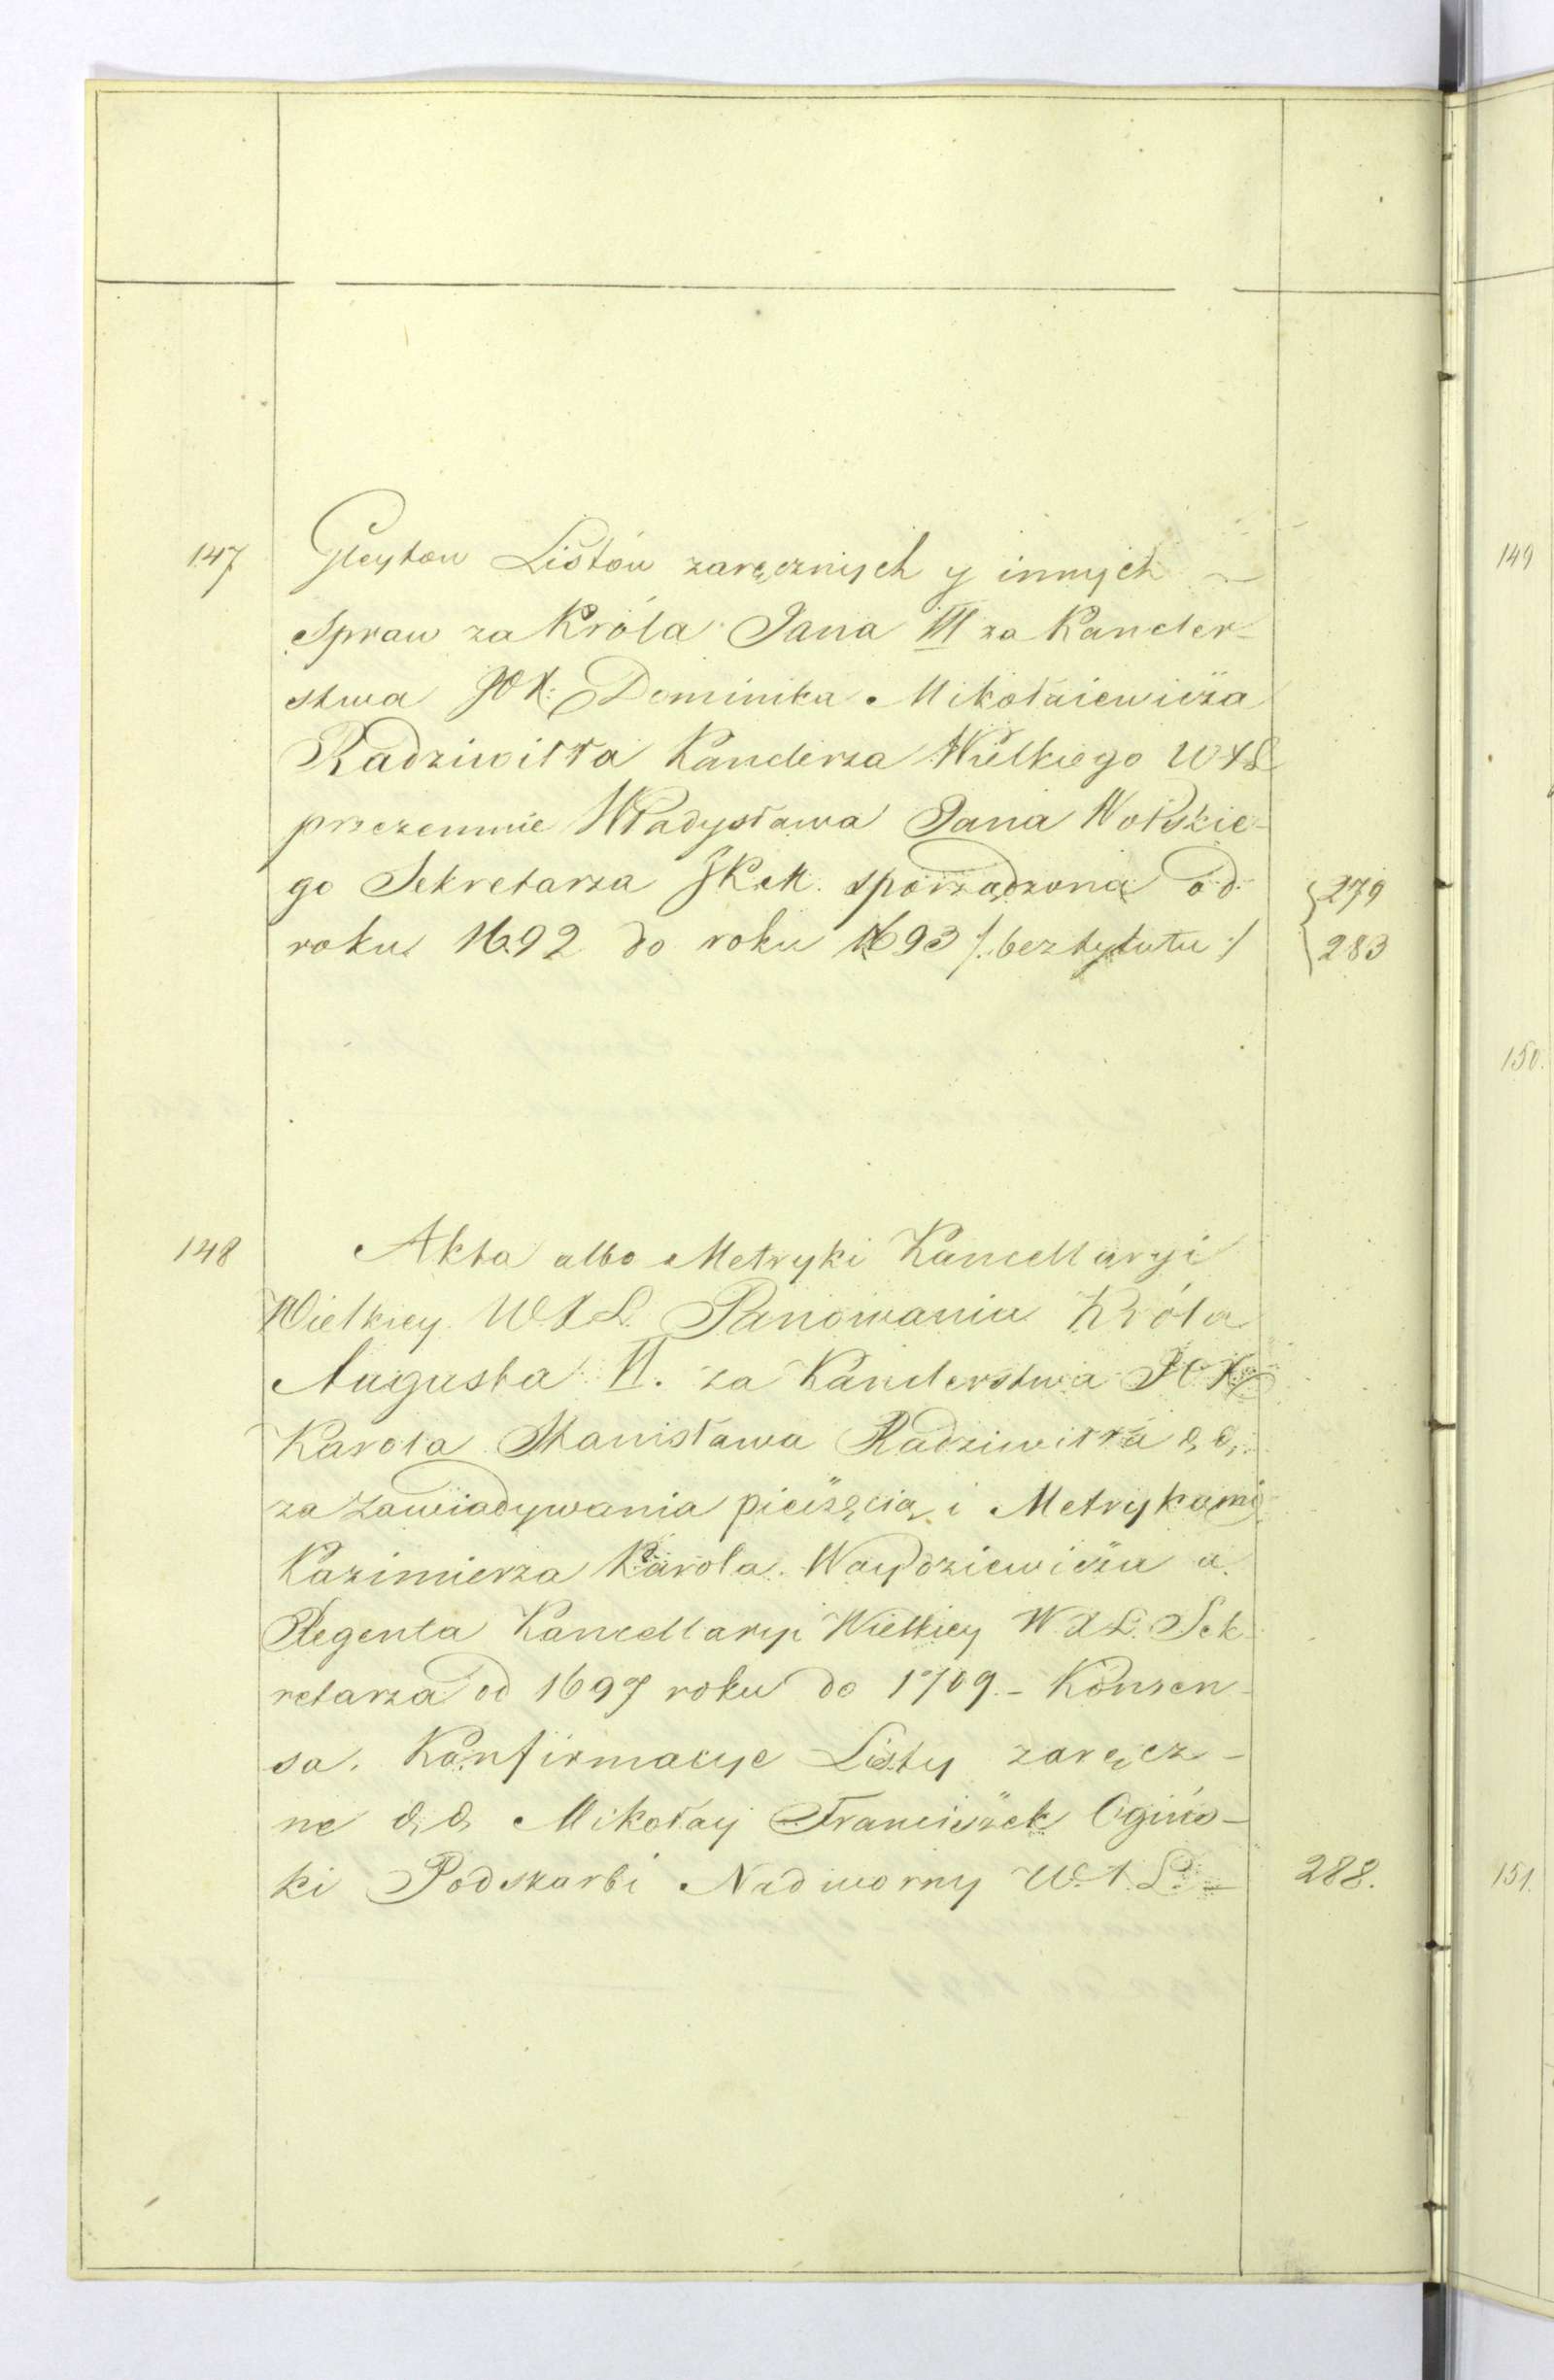 147 Gleytow Listów zaręcznych y innych
Spraw za Króla Jana III za Kancler-
stwa JOX: Dominika Mikołaiewicza
Radziwiłła Kanclerza Wielkiego WXL
przezemnie Władysława Jana Wolskie-
go Sekretarza JKM. sporządzona od
279
roku 1692 do roku 1693 /: bez tytułu :/
283
148 Akta albo Metryki Kancellaryi
Wielkiey WXL. Panowania Króla
Augusta II. za Kanclerstwa JOX
Karola Stanisława Radziwiłła
za zawiadywania pieczęcią i Metrykami
Kazimierza Karola
Regenta Kancellaryi Wielkiey W.X.L. Sek-
retarza od 1697 roku do 1709. - Konsen-
sa. Konfirmacye Listy zaręcz-
ne Mikołay Franciszek Ogińs-
ki Podskarbi Nadworny W.X.L. - 288.
149
150.
151.